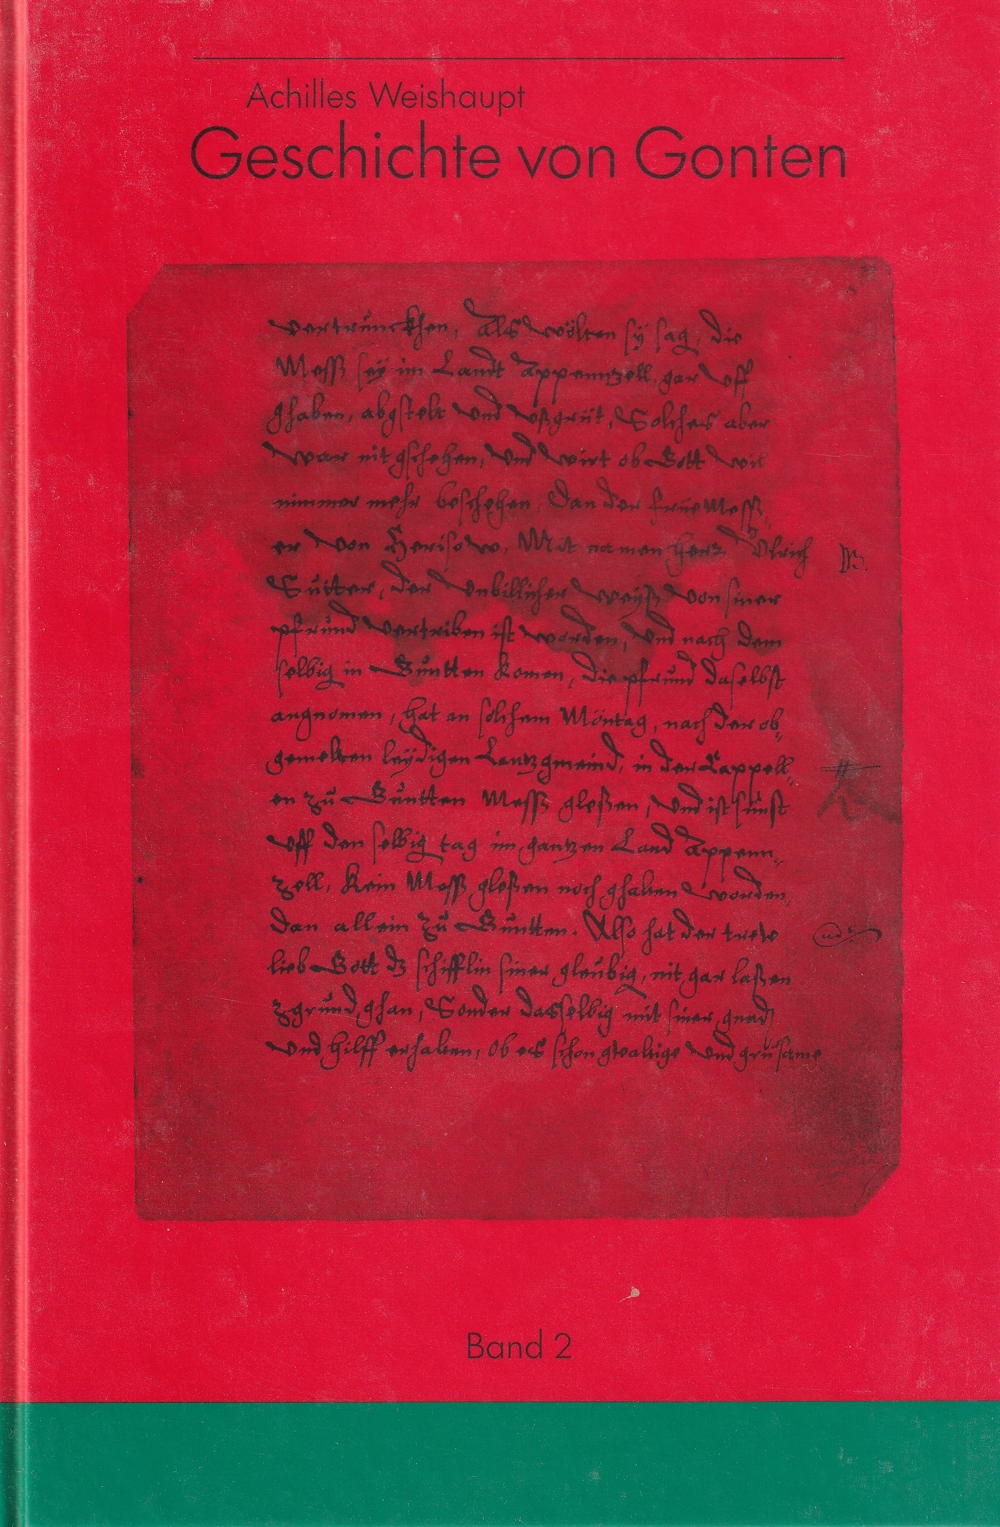 Achilles Weishaupt
Geschichte von Gonten
vertrunckhen, Als wölten sÿ sag, die
Mess seÿ im Landt Appennzell, gar uff
ghaben, abgstelt und ußgrüt, Solches aber
war nit gschehen, und wirt ob Gott wil
nimmer mehr beschehen, Dan der früe Mess,,
er von Herisow, Mit namen herr Ülrich
Sutter, der unbillicher weÿß von siner
pfrund vertriben ist worden, und nach dem
selbig in Guntten komen, die pfrund daselbst
angnomen, hat an solchem Möntag, nach der ob,,
gemelten leÿdigen Lantzgmeind, in der Cappell,,
en zu Guntten Mess gleßen, und ist sunst
uff den selbig tag im gantzen Land Appenn,,
zell, Kein Mess gleßen noch ghalten worden,
dan allein zu Guntten. Also hat der trew
lieb Gott dz schifflin siner gleubig, nit gar laßen
zgrund ghan, Sonder dasselbig mit siner gnad
und hilff erhalten, ob es schon gwaltige und grusame
Band 2